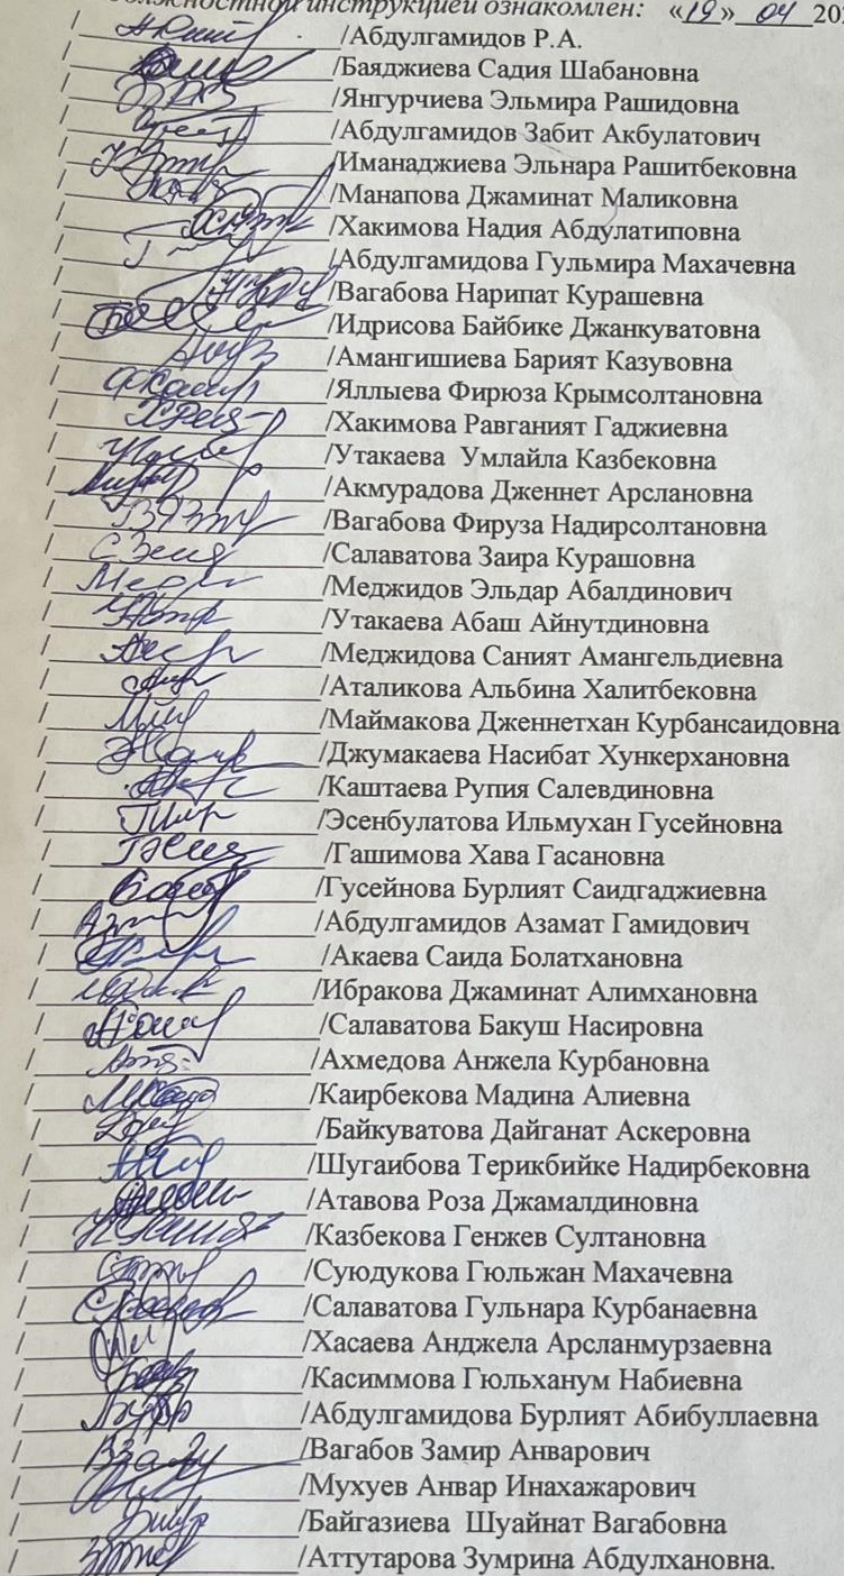 инструкцией ознакомлен: «19» 04 20
/ /Абдулгамидов Р.А.
/ /Баяджиева Садия Шабановна
/ /Янгурчиева Эльмира Рашидовна
/ /Абдулгамидов Забит Акбулатович
/ /Иманаджиева Эльнара Рашитбековна
/ /Манапова Джаминат Маликовна
/ /Хакимова Надия Абдулатиповна
/ /Абдулгамидова Гульмира Махачевна
/ /Вагабова Нарипат Курашевна
/ /Идрисова Байбике Джанкуватовна
/ /Амангишиева Барият Казувовна
/ /Яллыева Фирюза Крымсолтановна
/ /Хакимова Равганият Гаджиевна
/ /Утакаева Умлайла Казбековна
/ /Акмурадова Дженнет Арслановна
/ /Вагабова Фируза Надирсолтановна
/ /Салаватова Заира Курашовна
/ /Меджидов Эльдар Абалдинович
/ /Утакаева Абаш Айнутдиновна
/ /Меджидова Саният Амангельдиевна
/ /Аталикова Альбина Халитбековна
/ /Маймакова Дженнетхан Курбансаидовна
/ /Джумакаева Насибат Хункерхановна
/ /Каштаева Рупия Салевдиновна
/ /Эсенбулатова Ильмухан Гусейновна
/ /Гашимова Хава Гасановна
/ /Гусейнова Бурлият Саидгаджиевна
/ /Абдулгамидов Азамат Гамидович
/ /Акаева Саида Болатхановна
/ /Ибракова Джаминат Алимхановна
/ /Салаватова Бакуш Насировна
/ /Ахмедова Анжела Курбановна
/ /Каирбекова Мадина Алиевна
/ /Байкуватова Дайганат Аскеровна
/ /Шугаибова Терикбийке Надирбековна
/ /Атавова Роза Джамалдиновна
/ /Казбекова Генжев Султановна
/ /Суюдукова Гюльжан Махачевна
/ /Салаватова Гульнара Курбанаевна
/ /Хасаева Анджела Арсланмурзаевна
/ /Касиммова Гюльханум Набиевна
/ /Абдулгамидова Бурлият Абибуллаевна
/ /Вагабов Замир Анварович
/ /Мухуев Анвар Инахажарович
/ /Байгазиева Шуайнат Вагабовна
/ /Аттутарова Зумрина Абдулхановна.